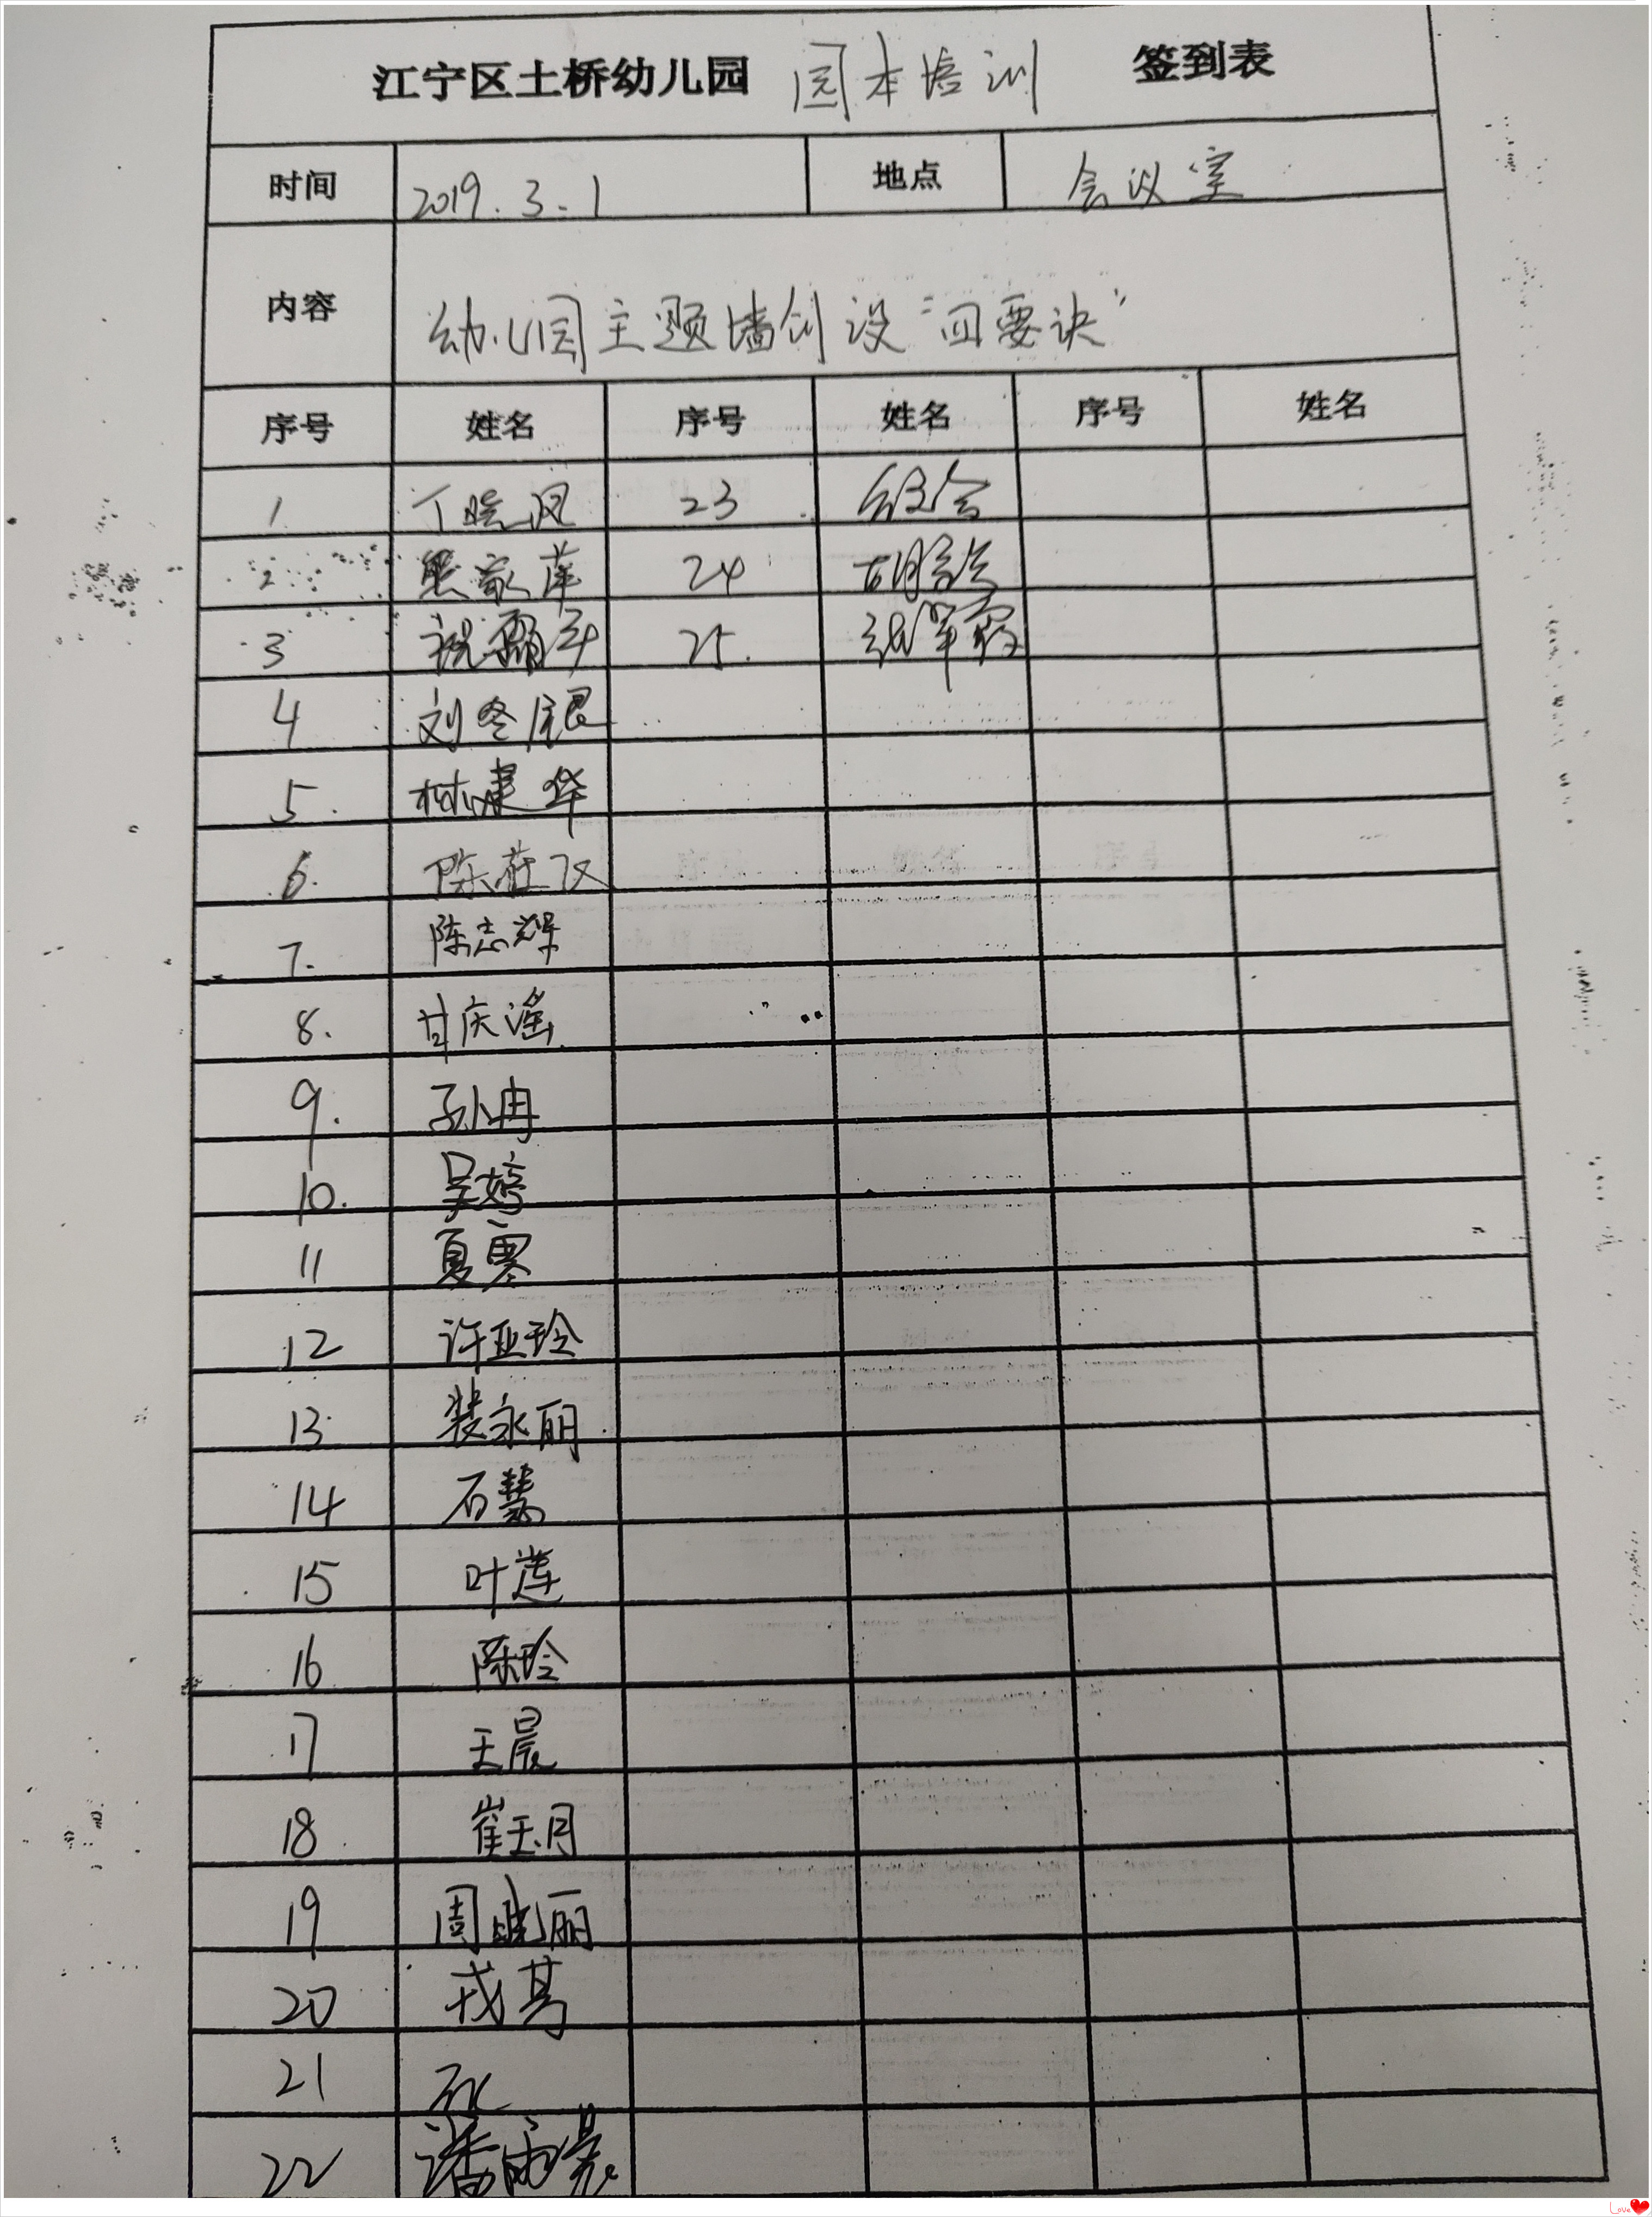 江宁区土桥幼儿园 园本培训 签到表
时间 2019.3.1 地点 会议室
内容 幼儿园主题墙创设“四要诀”
序号 姓名 序号 姓名 序号 姓名
1 丁晓凤 23
2 熊家莲 24
3 25.
4 刘冬银
5. 林建华
6.
7. 陈志耀
8. 甘庆谣
9. 孙冉
10. 吴婷
11 夏寒
12 许亚玲
13 裴永丽
14 石慧
15 叶莲
16 陈玲
17 王晨
18 崔玉月
19 周晓丽
20 戎其
21
22
Love